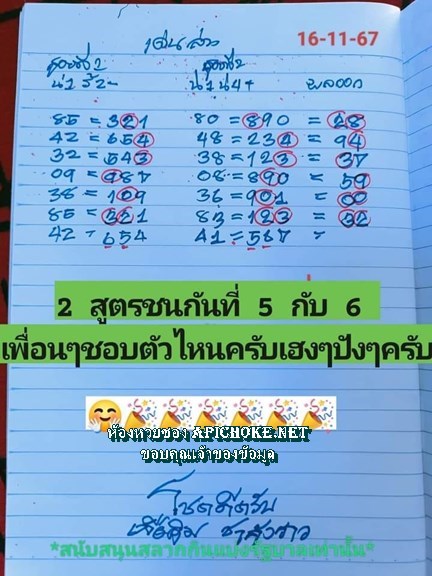 เด่นล่าง 16-11-67
สูตรที่ 2 สูตรที่ 2
น่า 1 น่า 4+ ผลออก
85 = 321 80 = 890 = 28
42 = 654 48 = 234 = 94
32 = 543 38 = 123 = 37
09 = 987 08 = 890 = 59
38 = 109 36 = 901 = 00
85 = 321 83 = 123 = 32
42 = 654 41 = 567 =
2 สูตรชนกันที่ 5 กับ 6
เพื่อนๆชอบตัวไหนครับเฮงๆปังๆครับ
ห้องหวยของ APICHOKE.NET
ขอบคุณเจ้าของข้อมูล
โชคดีครับ
*สนับสนุนสลากกินแบ่งรัฐบาลเท่านั้น*